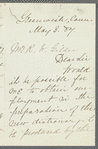 Greenwich, Conn.
May 8. 87
Mr R. W. Gilder
Dear Sir
Would
it be possible for
me to obtain em-
ployment in the
preparation of the
new dictionary to
be produced by the